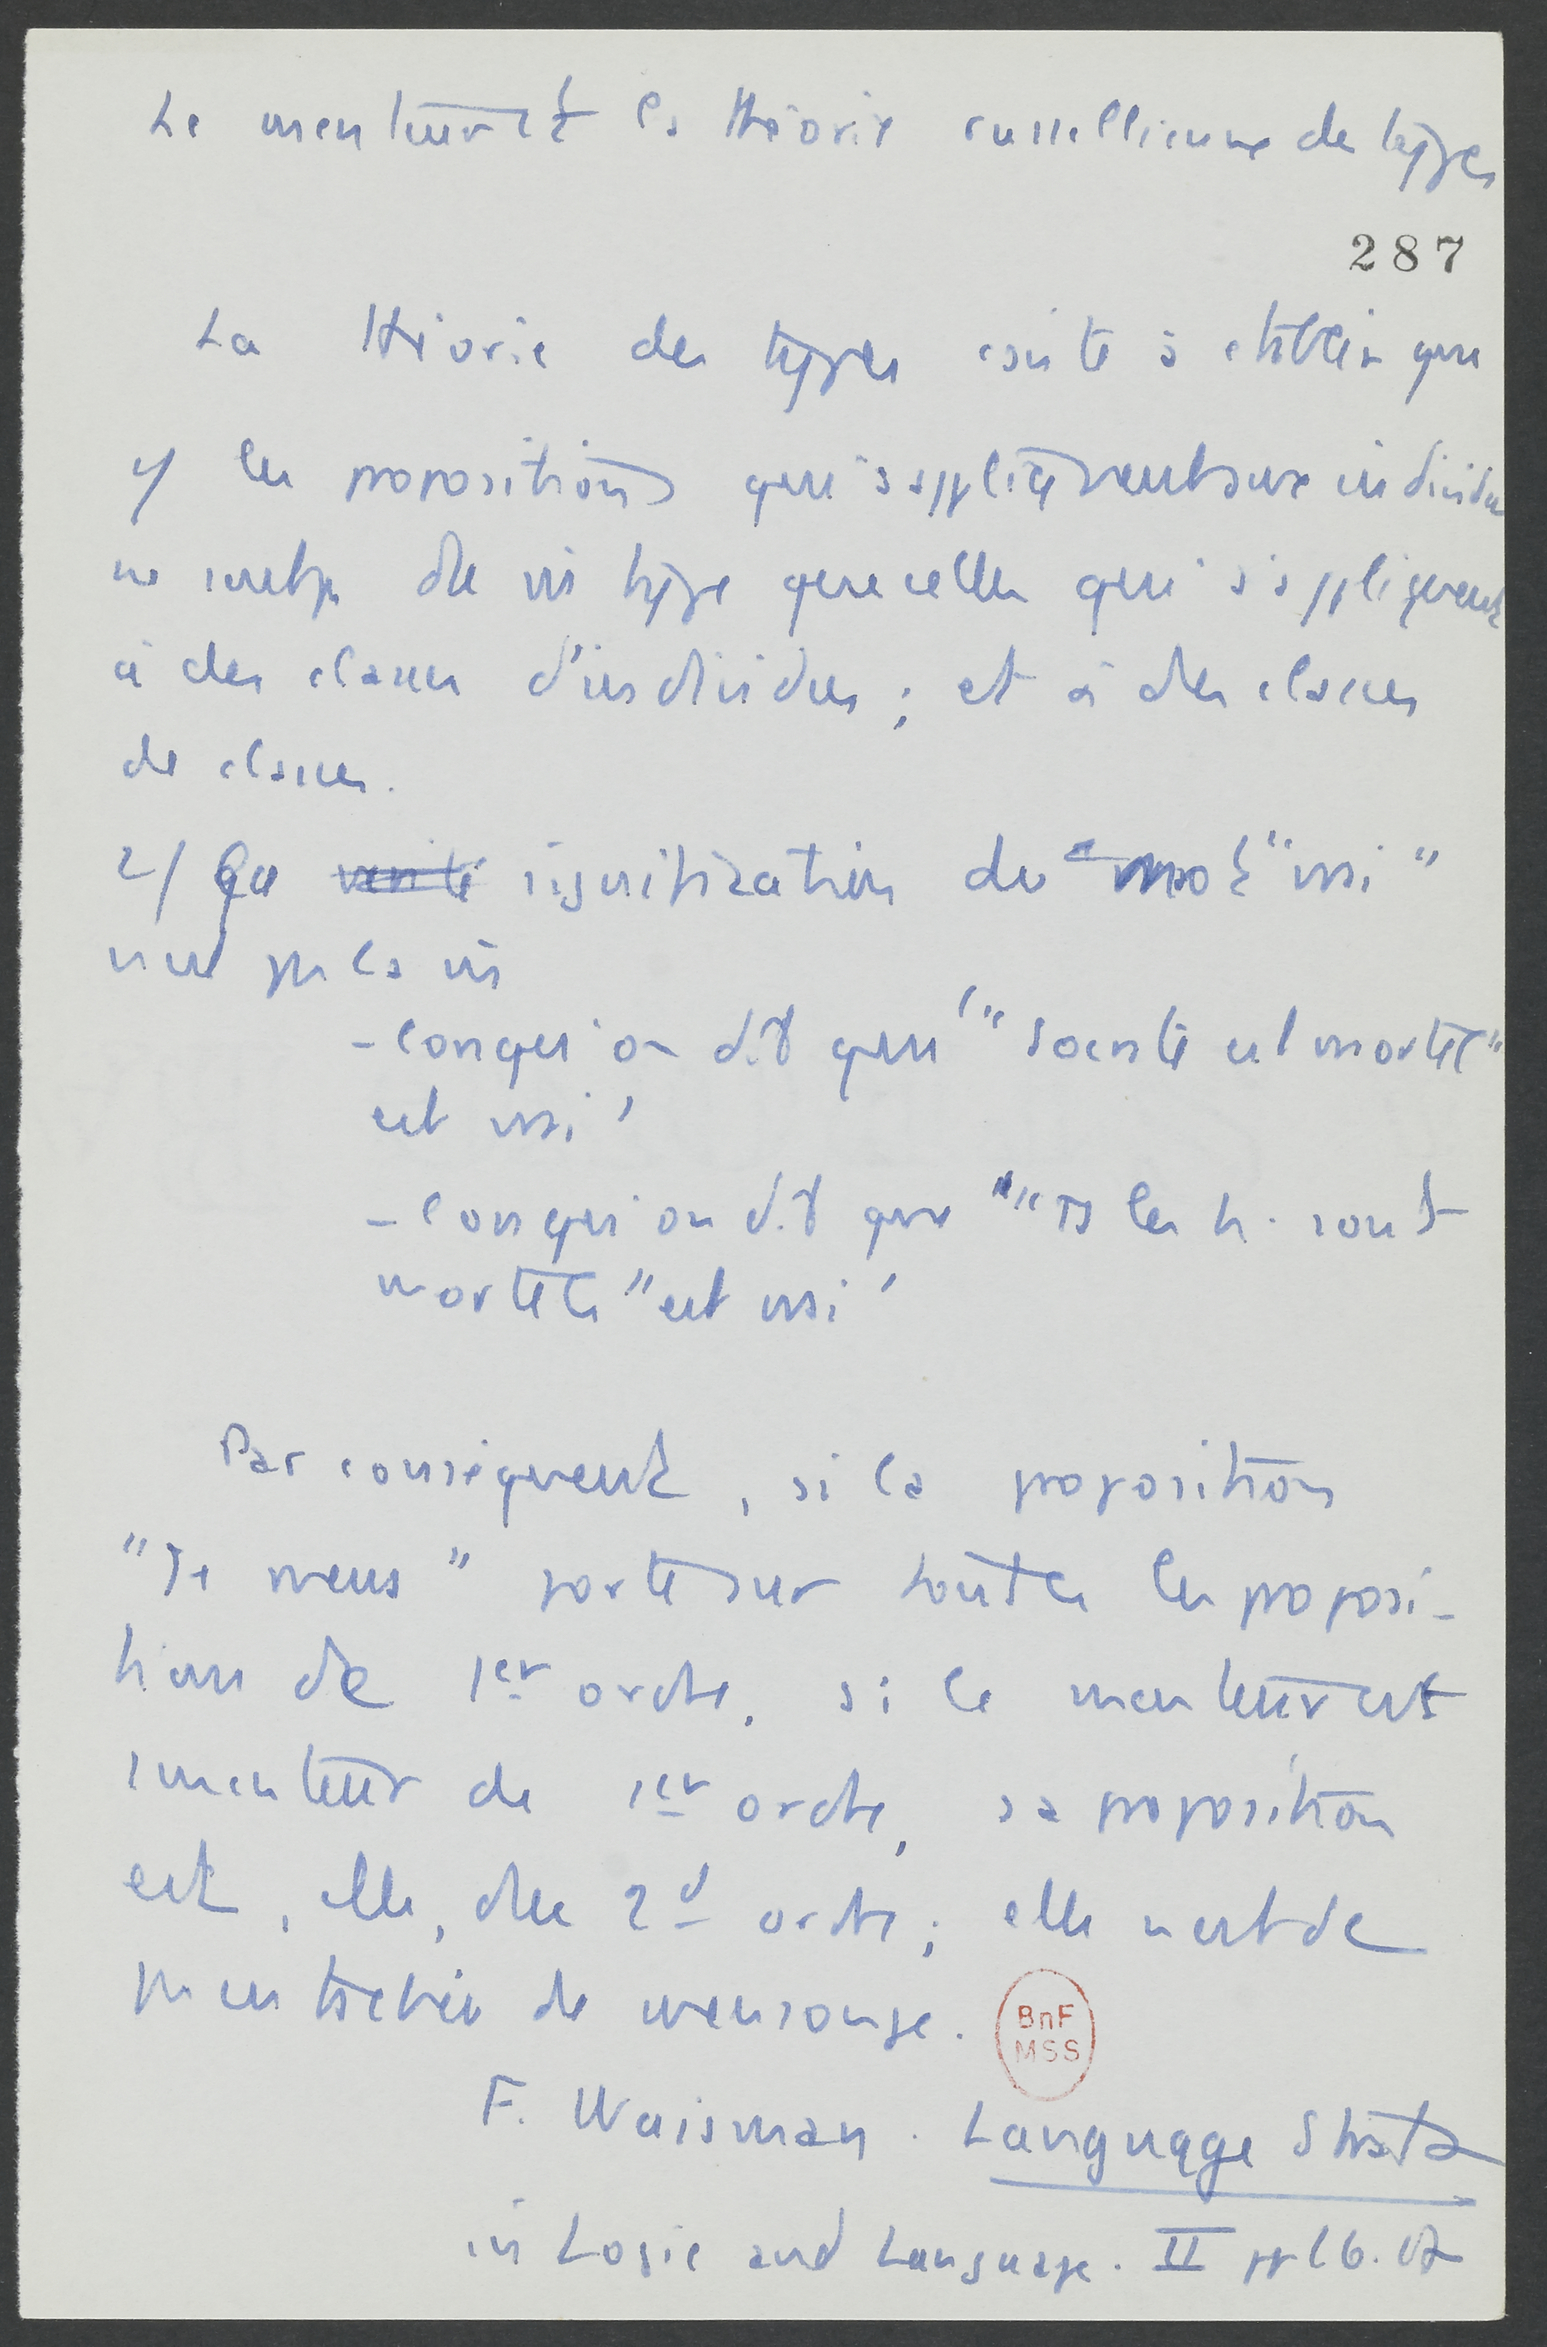 Le menteur et la théorie russellienne des types
287
La théorie des types consiste à établir que
1/ les propositions qui s'appliquent aux individus
ne sont pas du même type que celles qui s'appliquent
à des classes d'individus ; et à des classes
de classes.
2/ Que vérité signification du mot "vrai"
n'est pas la même
- lorsqu'on dit que '"Socrate est mortel"
est vrai'
- lorsqu'on dit que '"Ts les h. sont
mortels" est vrai'
Par conséquent, si la proposition
"Je mens" porte sur toutes les proposi-
tions de 1er ordre, si le menteur est
menteur de 1er ordre, sa proposition
est, elle, du 2d ordre ; elle n'est dc
pas entachée de mensonge.
BnF
MSS
F. Waisman. Language Strata
in Logic and Language. II pp 16.17